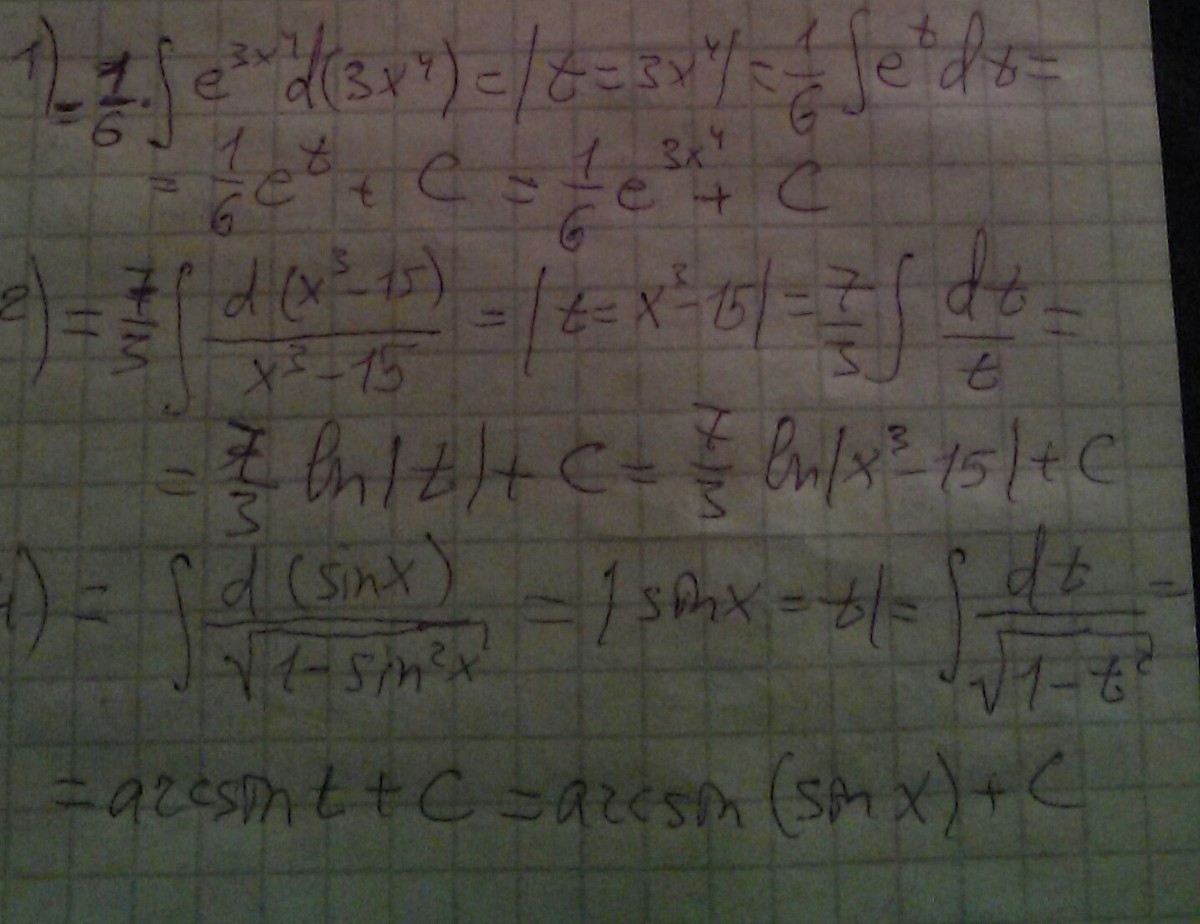 1) = 1/6 · ∫ e^(3x^4) d(3x^4) = |t = 3x^4| = 1/6 ∫ e^t dt =
= 1/6 e^t + C = 1/6 e^(3x^4) + C
2) = 7/3 ∫ d(x^3 - 15)/(x^3 - 15) = |t = x^3 - 15| = 7/3 ∫ dt/t =
= 7/3 ln|t| + C = 7/3 ln|x^3 - 15| + C
) = ∫ d(sinx)/√(1 - sin^2 x) = |sinx = t| = ∫ dt/√(1 - t^2) =
= arcsin t + C = arcsin (sin x) + C